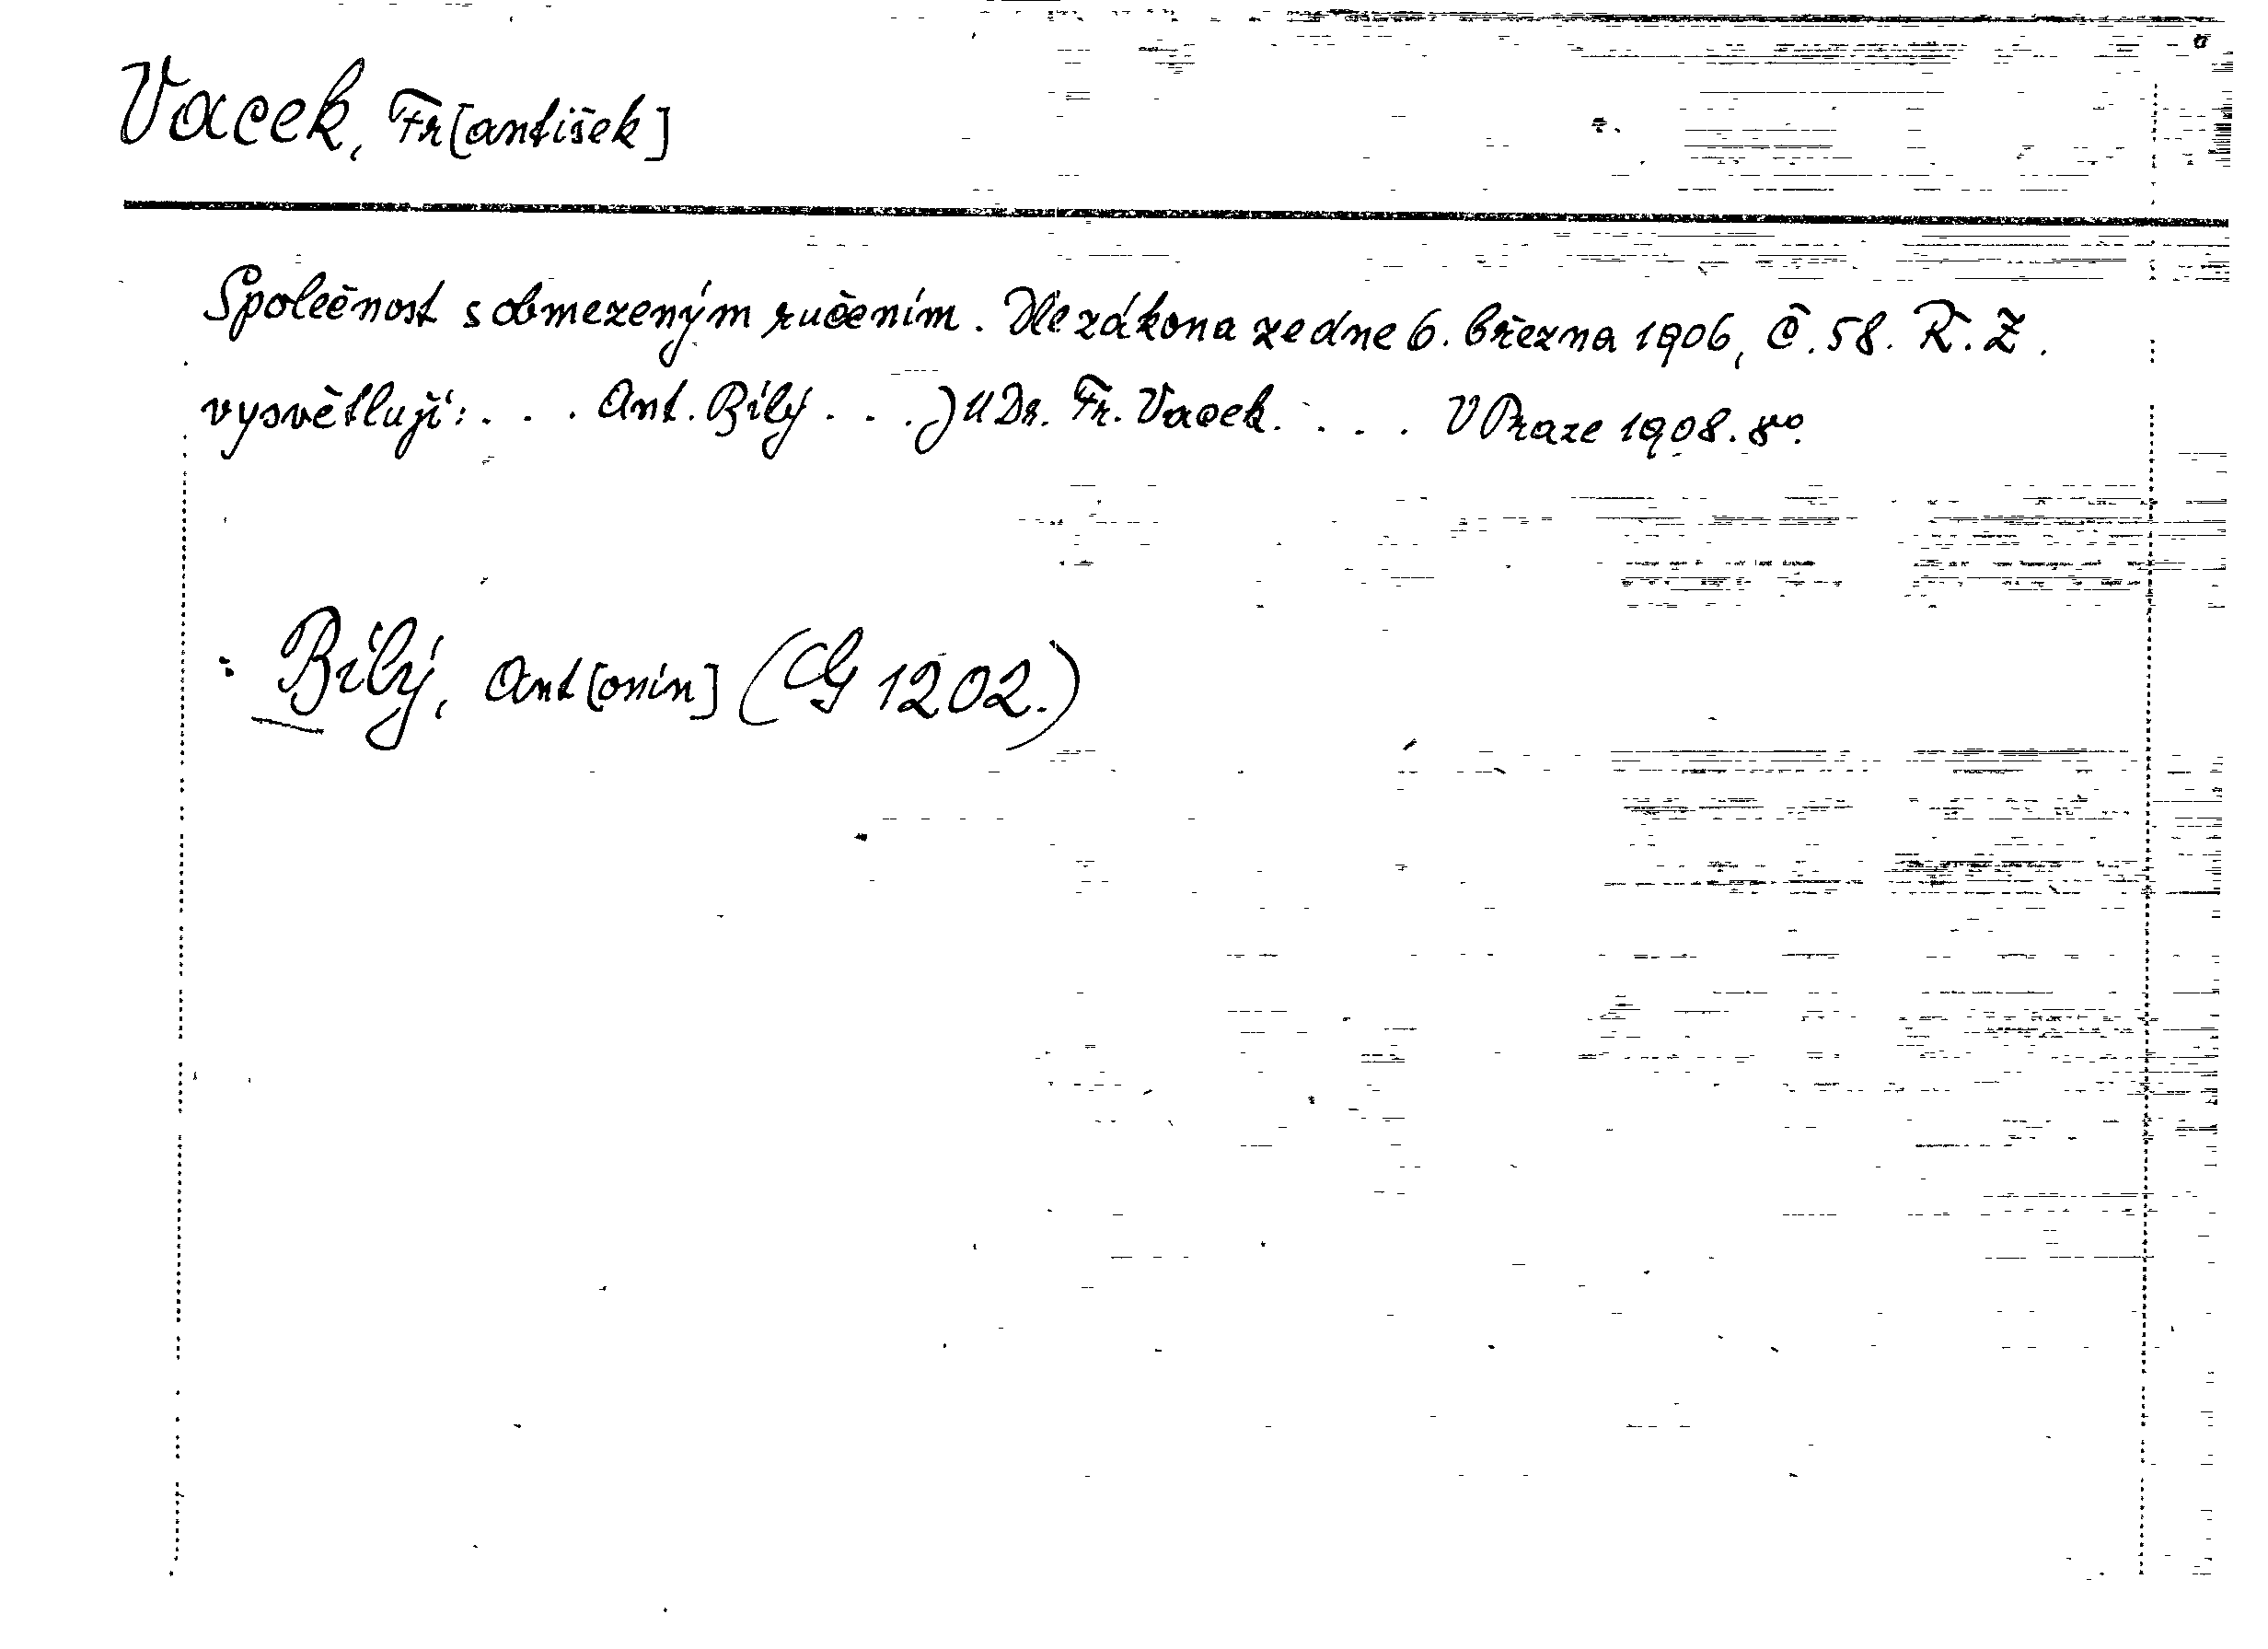 Vacek, Fr[antišek]
Společnost s obmezeným ručením. Dle zákona ze dne 6. března 1906, č. 58. Ř. Z.
vysvětlují: . . . Ant. Bílý . . . JUDr. Fr. Vacek. . . . V Praze 1908. 8º.
: Bílý, Ant[onín] (CG 1202.)